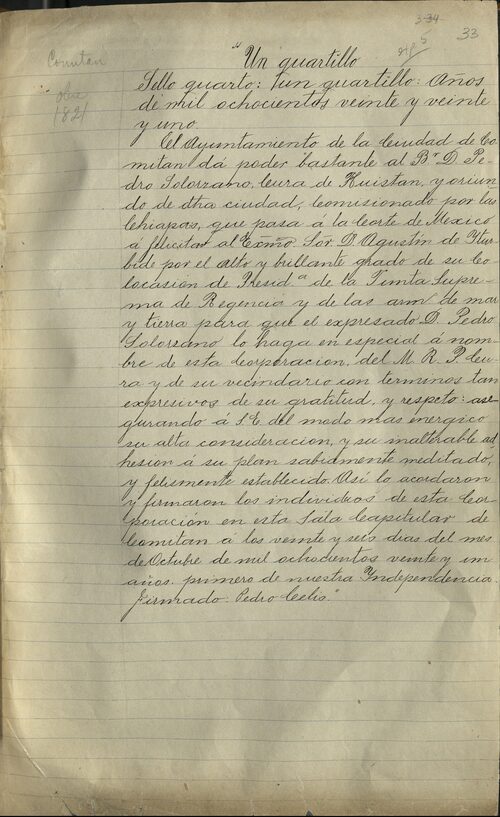 3-34
5
33
Comitan
1821
"Un quartillo
Sello quarto: un quartillo: Años
de mil ochocientos veinte y veinte
y uno.
El Ayuntamiento de la Ciudad de Co-
mitan dá poder bastante al Br. D. Pe-
dro Solorzano, Cura de Huistan, y oriun-
do de dha ciudad, comisionado por las
Chiapas, que pasa á la Corte de Mexico
á felicitar al Exmo. Sor. D. Agustin de Ytur-
bide por el alto y brillante grado de su Co-
locasión de Presid.a de la Junta Supre-
ma de Regencia y de las arm.s de mar
y tierra para que el expresado D. Pedro
Solorzano lo haga en especial á nom-
bre de esta Corporacion, del M. R. P. Cu-
ra y de su vecindario con terminos tan
expresivos de su gratitud, y respeto: ase-
gurando á S. E. del modo mas energico
su alta consideracion, y su inalterable ad
hesion á su plan sabiamente meditado,
y felismente establecido. Asi lo acordaron
y firmaron los individuos de esta Cor-
poración en esta Sala Capitular de
Comitan á los veinte y seis dias del mes
de Octubre de mil ochocientos veinte y un
años. primero de nuestra Yndependencia.
Firmado: Pedro Celis."